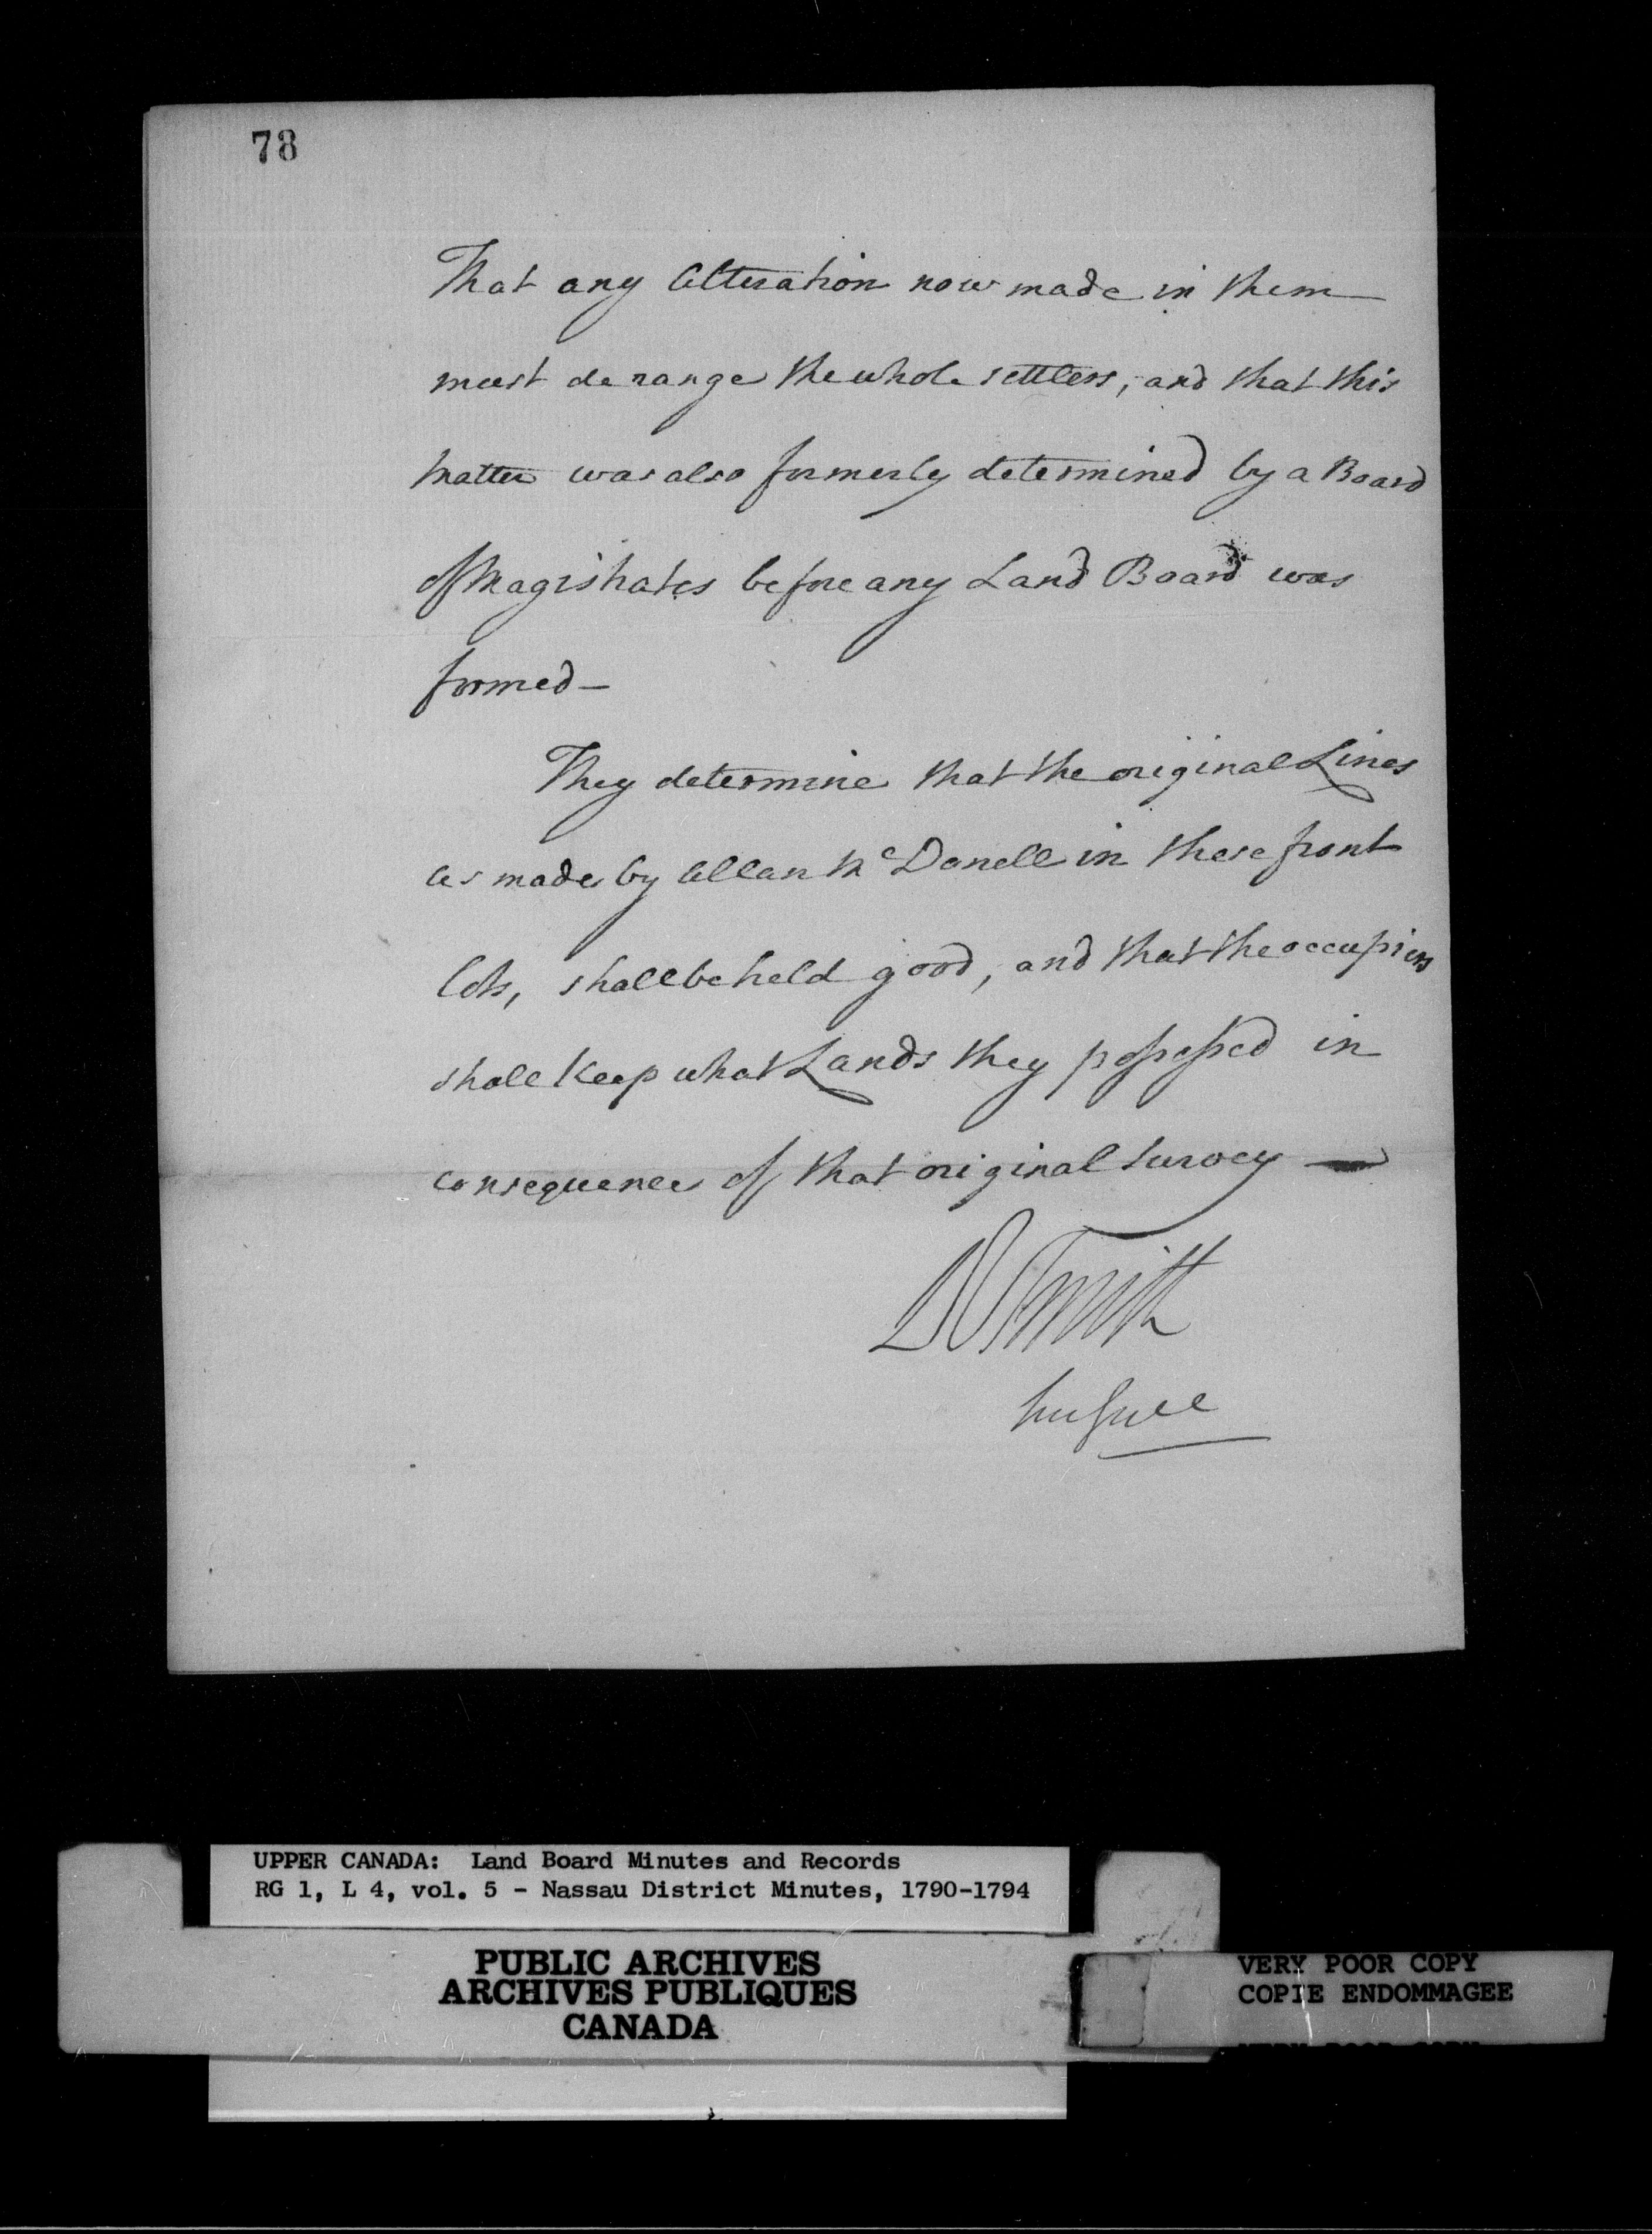 78
That any Alteration now made in them
must derange the whole settlers, and that this
matter was also formerly determined by a Board
of Magistrates before any Land Board was
formed —
They determine that the original Lines
as made by Allan McDonell in these front
lots, shall be held good, and that the occupiers
shall keep what Lands they possessed in
consequence of that original Survey —
DWSmith
UPPER CANADA: Land Board Minutes and Records
RG 1, L 4, vol. 5 - Nassau District Minutes, 1790-1794
PUBLIC ARCHIVES
ARCHIVES PUBLIQUES
CANADA
VERY POOR COPY
COPIE ENDOMMAGEE
VERY POOR COPY